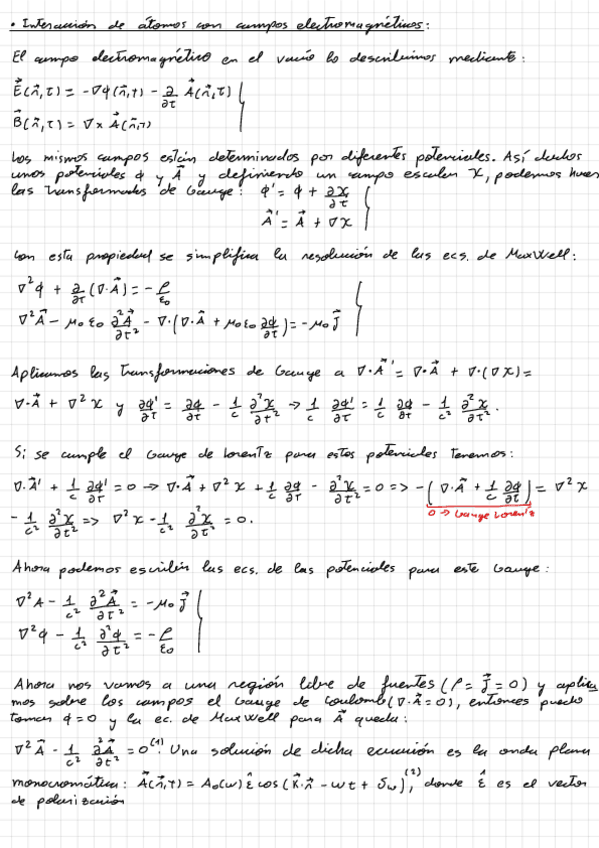 • Interacción de átomos con campos electromagnéticos:
El campo electromagnético en el vacío lo describimos mediante:
E⃗(r⃗,t) = -∇ϕ(r⃗,t) - ∂/∂t A⃗(r⃗,t)
B⃗(r⃗,t) = ∇×A⃗(r⃗,t)
Los mismos campos están determinados por diferentes potenciales. Así dados
unos potenciales ϕ y A⃗ y definiendo un campo escalar χ, podemos hacer
las transformadas de Gauge: ϕ' = ϕ + ∂χ/∂t
A⃗' = A⃗ + ∇χ
Con esta propiedad se simplifica la resolución de las ecs. de Maxwell:
∇²ϕ + ∂/∂t (∇·A⃗) = -ρ/ε₀
∇²A⃗ - μ₀ε₀ ∂²A⃗/∂t² - ∇·(∇·A⃗ + μ₀ε₀ ∂ϕ/∂t) = -μ₀J⃗
Aplicamos las transformaciones de Gauge a ∇·A⃗' = ∇·A⃗ + ∇·(∇χ) =
∇·A⃗ + ∇²χ y ∂ϕ'/∂t = ∂ϕ/∂t - 1/c ∂²χ/∂t² → 1/c ∂ϕ'/∂t = 1/c ∂ϕ/∂t - 1/c² ∂²χ/∂t².
Si se cumple el Gauge de Lorentz para estos potenciales tenemos:
∇·A⃗' + 1/c ∂ϕ'/∂t = 0 → ∇·A⃗ + ∇²χ + 1/c ∂ϕ/∂t - ∂²χ/∂t² = 0 => -(∇·A⃗ + 1/c ∂ϕ/∂t) = ∇²χ
0 → Gauge Lorentz
- 1/c² ∂²χ/∂t² => ∇²χ - 1/c² ∂²χ/∂t² = 0.
Ahora podemos escribir las ecs. de las potenciales para este Gauge:
∇²A - 1/c² ∂²A⃗/∂t² = -μ₀J⃗
∇²ϕ - 1/c² ∂²ϕ/∂t² = -ρ/ε₀
Ahora nos vamos a una región libre de fuentes (ρ = J⃗ = 0) y aplica
mos sobre los campos el Gauge de Coulomb (∇·A⃗ = 0), entonces puedo
tomar ϕ = 0 y la ec. de Maxwell para A⃗ queda:
∇²A⃗ - 1/c² ∂²A⃗/∂t² = 0⁽¹⁾. Una solución de dicha ecuación es la onda plana
monocromática: A⃗(r⃗,t) = A₀(ω) ε̂ cos(k⃗·r⃗ - ωt + δω)⁽²⁾, donde ε̂ es el vector
de polarización